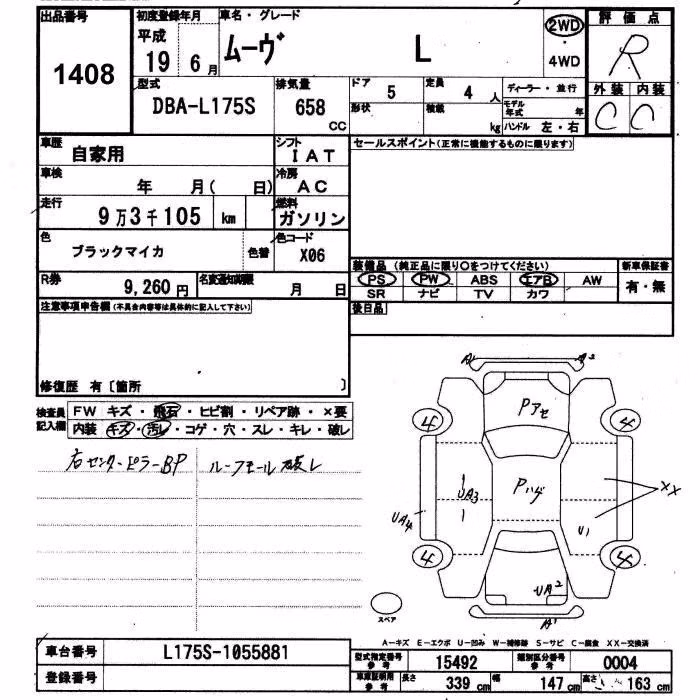 出品番号 初度登録年月 車名・グレード 評価点
1408 平成 19 6月 ムーヴ L 2WD ・ 4WD R
型式 排気量 ドア 定員 ディーラー・並行 外装 内装
DBA-L175S 658 CC 5 4人 C C
形状 積載 kg モデル年式 年 ハンドル 左・右
車歴 自家用 シフト IAT セールスポイント(正常に機能するものに限ります)
車検 年 月( 日) 冷房 AC
走行 9万3千105 km 燃料 ガソリン
色 ブラックマイカ 色替 色コード X06
装備品 (純正品に限り○をつけてください) 新車保証書
PS PW ABS エアB AW 有・無
SR ナビ TV カワ
R券 9,260円 名変通知期限 月 日
後日品
注意事項申告欄(不具合内容等は具体的に記入して下さい)
修復歴 有〔箇所 〕
検査員記入欄 FW キズ・飛石・ヒビ割・リペア跡・×要
内装 キズ・汚レ・コゲ・穴・スレ・キレ・破レ
右センターピラーBP ルーフモール破レ
A1 A2
Pアセ
4 4
UA3 Pハゲ XX
UA4 U1
4 4
UA2
A1
スペア
A−キズ E−エクボ U−凹み W−補修跡 S−サビ C−腐食 XX−交換済
車台番号 L175S-1055881 型式指定番号 参考 15492 類別区分番号 参考 0004
登録番号 車庫証明用 参考 長さ 339cm 幅 147cm 高さ 163cm